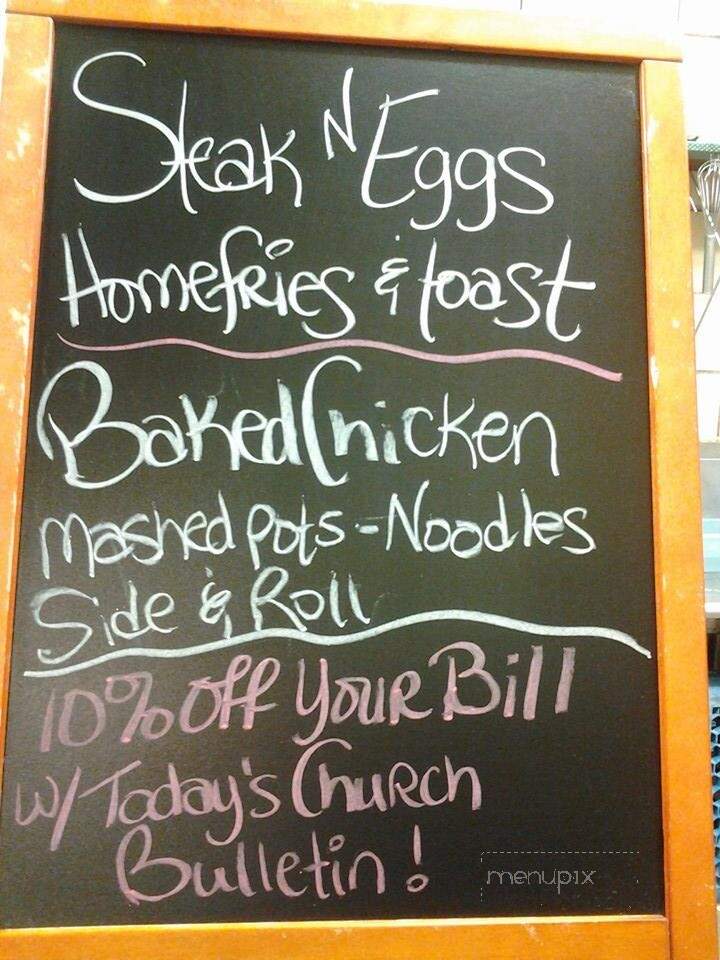 Steak N Eggs
Homefries & toast
Baked Chicken
mashed pots - Noodles
Side & Roll
10% Off Your Bill
w/ Today's Church
Bulletin!
menupix